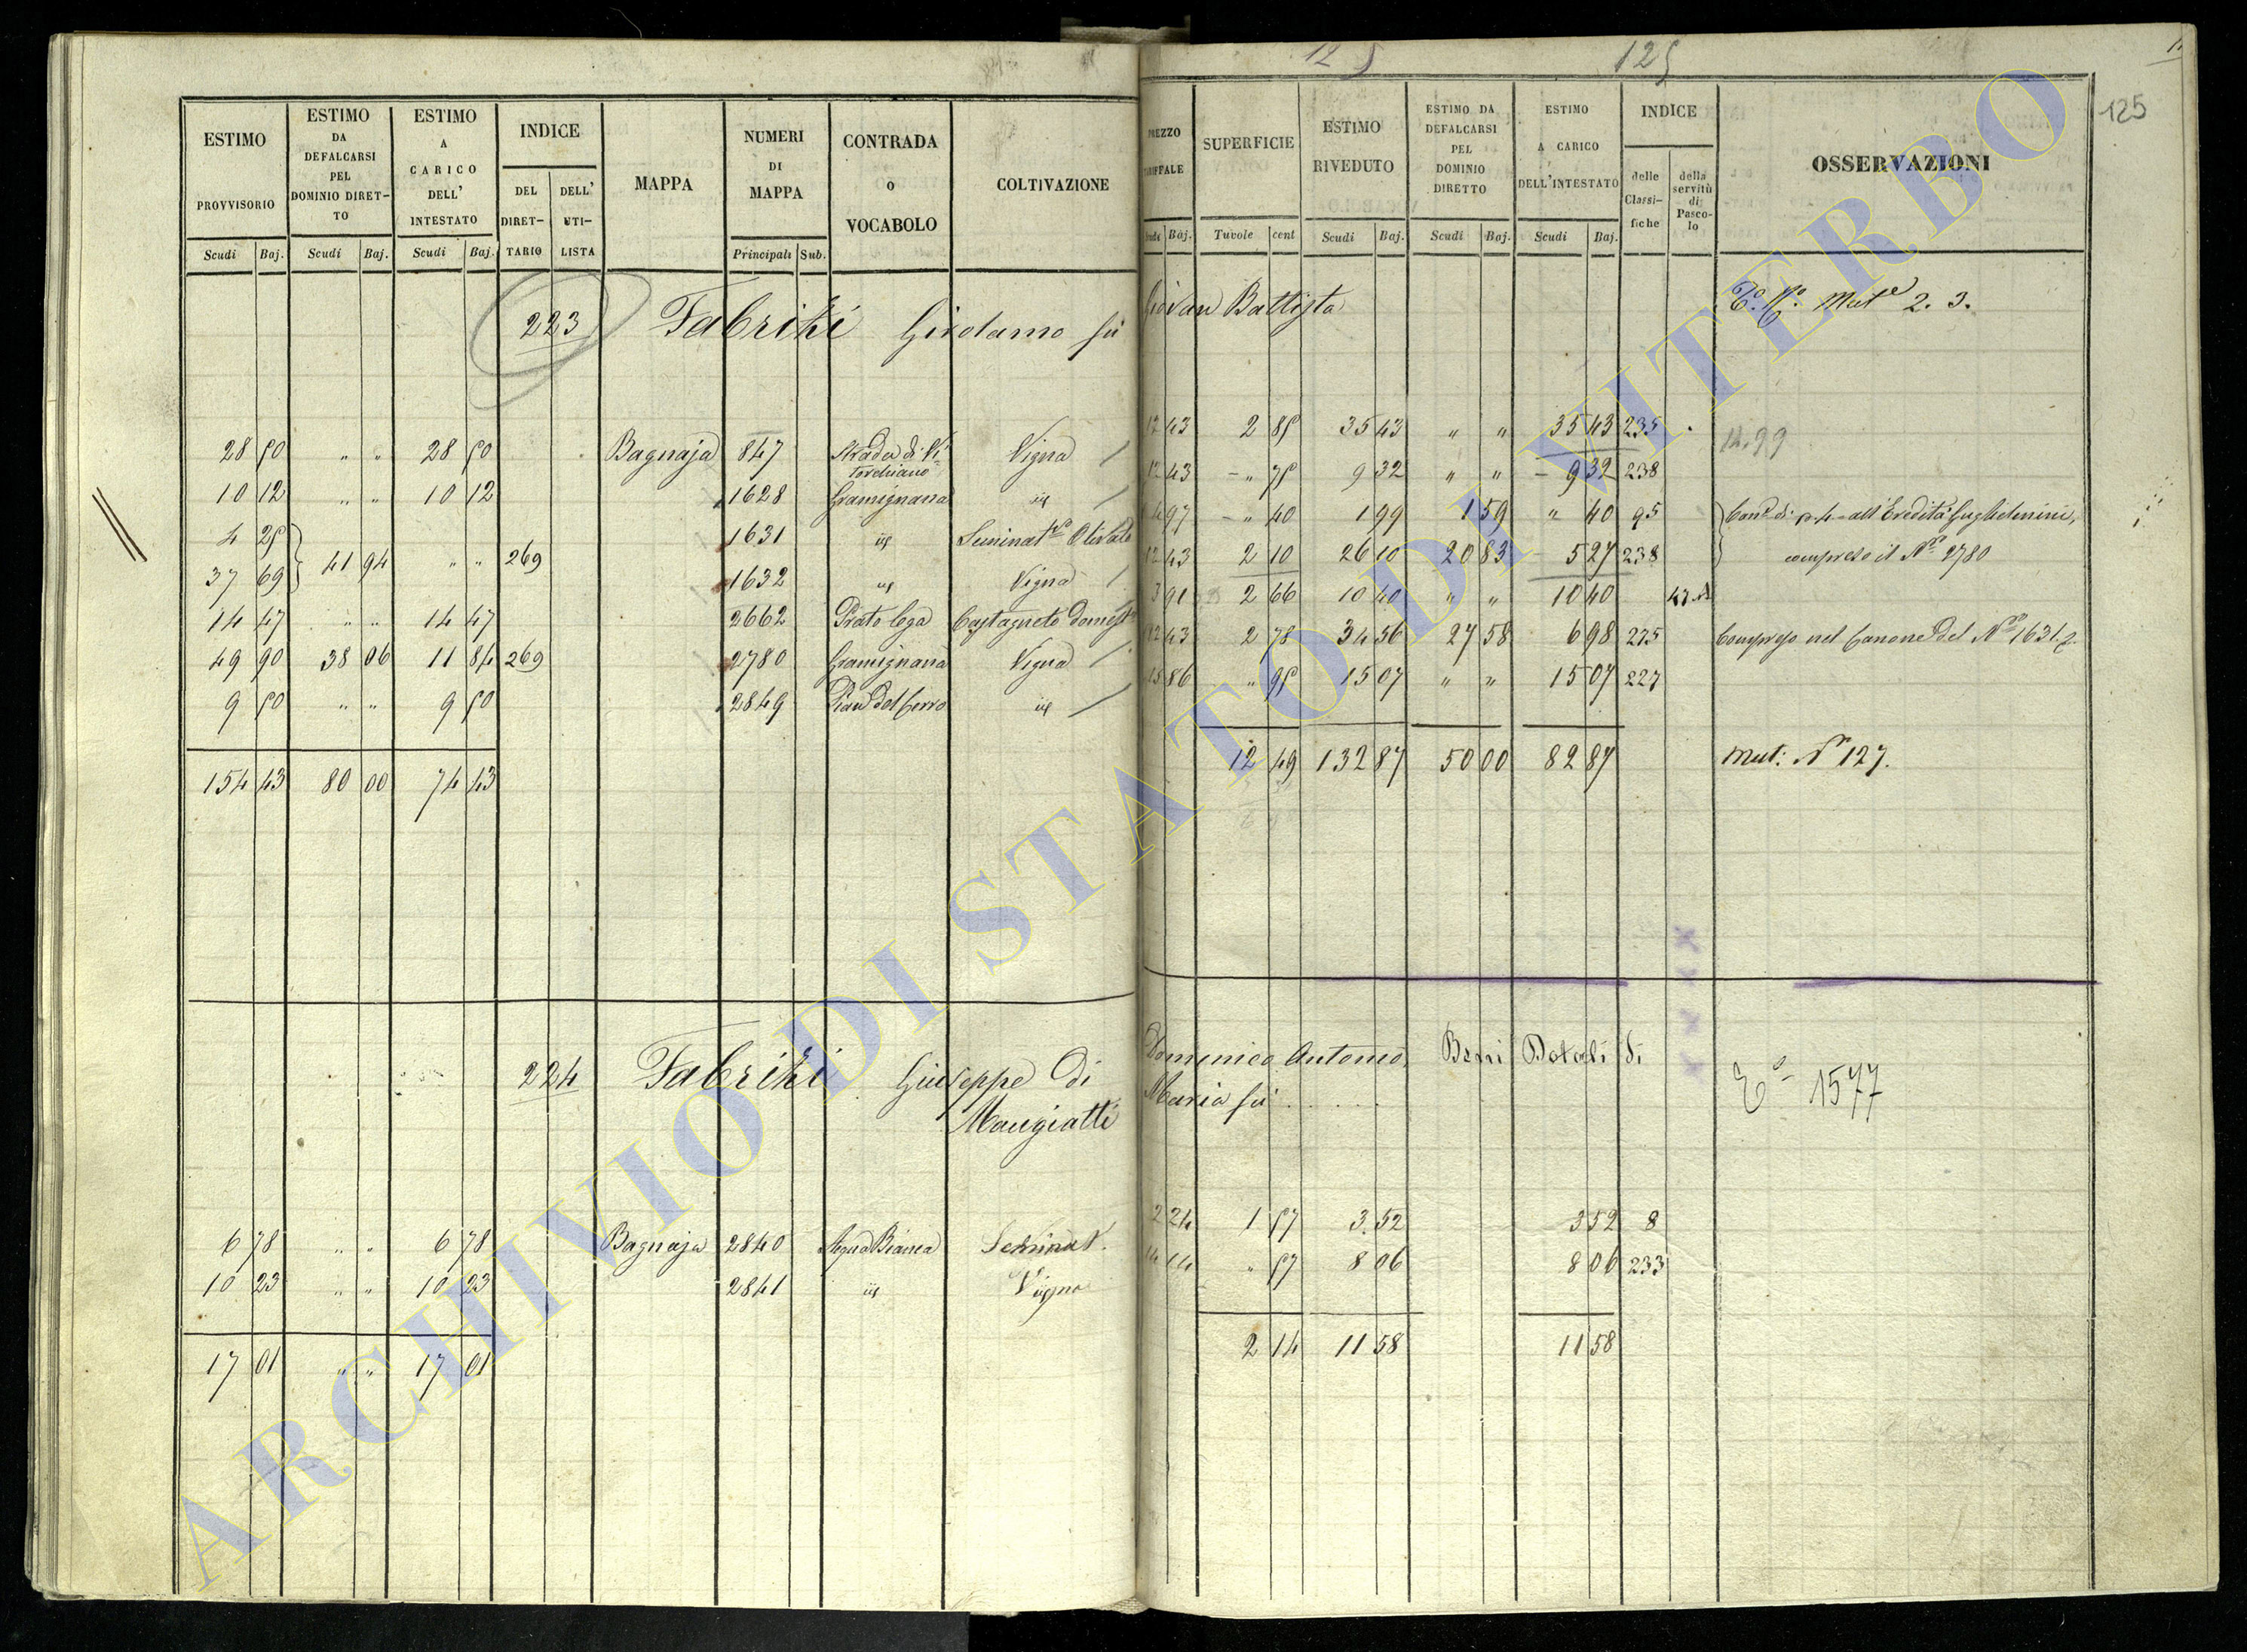 125
125
125
ESTIMO PROVVISORIO
ESTIMO DA DEFALCARSI PEL DOMINIO DIRET-TO
ESTIMO A CARICO DELL' INTESTATO
INDICE
DEL DIRET-TARIO
DELL' UTI-LISTA
MAPPA
NUMERI DI MAPPA
CONTRADA O VOCABOLO
COLTIVAZIONE
PREZZO TARIFFALE
SUPERFICIE
ESTIMO RIVEDUTO
ESTIMO DA DEFALCARSI PEL DOMINIO DIRETTO
ESTIMO A CARICO DELL'INTESTATO
INDICE
delle Classi-fiche
della servitù di Pasco-lo
OSSERVAZIONI
Scudi Baj. Scudi Baj. Scudi Baj. Principali Sub. Scudi Baj. Tavole cent Scudi Baj. Scudi Baj. Scudi Baj.
223 Fabrizi Girolamo fu Giovan Battista 2. 3.
28 50 " " 28 50 Bagnaja 847 Strada di Vitorchiano Vigna 12 43 2 85 35 43 " " 35 43 235
10 12 " " 10 12 1628 Gramignana id 12 43 " 75 9 32 " " 9 32 238
4 25 1631 id Seminat.o Olivato 4 97 " 40 1 99 1 59 " 40 95 all'Eredità Guglielmini,
37 69 41 94 " " 269 1632 id Vigna 12 43 2 10 26 10 20 83 5 27 238 compreso il N.o 2780
14 47 " " 14 47 2662 Prato lega Castagneto domest. 3 91 2 66 10 40 " " 10 40
49 90 38 06 11 84 269 2780 Gramignana Vigna 12 43 2 78 34 56 27 58 6 98 225 Compreso nel Canone del N.o 1631.
9 50 " " 9 50 2849 Pian del Cerro id 15 86 " 95 15 07 " " 15 07 227
154 43 80 00 74 43 12 49 132 87 50 00 82 87 Mut: N 127.
224 Fabrizi Giuseppe di Domenico Antonio, Beni Dotali di
Mangiatti Maria fu . . . . . 1577
6 78 " " 6 78 Bagnaja 2840 Acqua Bianca Seminat. 2 24 1 57 3 52 3 52 8
10 23 " " 10 23 2841 id Vigna 14 14 " 57 8 06 8 06 233
17 01 " " 17 01 2 14 11 58 11 58
ARCHIVIO DI STATO DI VITERBO